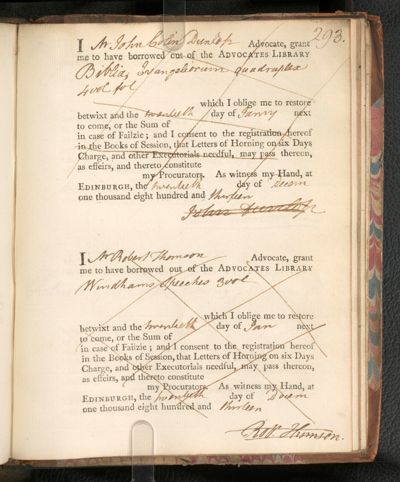 293.
I Mr John Colin Dunlop Advocate, grant
me to have borrowed out of the ADVOCATES LIBRARY
Biblia, Evangeliorum quadruplex
4 vol fol
which I oblige me to restore
betwixt and the twentieth day of Janry next
to come, or the Sum of
in case of Failzie; and I consent to the registration hereof
in the Books of Session, that Letters of Horning on six Days
Charge, and other Executorials needful, may pass thereon,
as effeirs, and thereto constitute
my Procurators. As witness my Hand, at
EDINBURGH, the twentieth day of Decem
one thousand eight hundred and thirteen
John Dunlop
I Mr Robert Thomson Advocate, grant
me to have borrowed out of the ADVOCATES LIBRARY
Windhams Speeches 3 vol
which I oblige me to restore
betwixt and the twentieth day of Jan next
to come, or the Sum of
in case of Failzie; and I consent to the registration hereof
in the Books of Session, that Letters of Horning on six Days
Charge, and other Executorials needful, may pass thereon,
as effeirs, and thereto constitute
my Procurators. As witness my Hand, at
EDINBURGH, the twentieth day of Decem
one thousand eight hundred and thirteen
Robt Thomson.